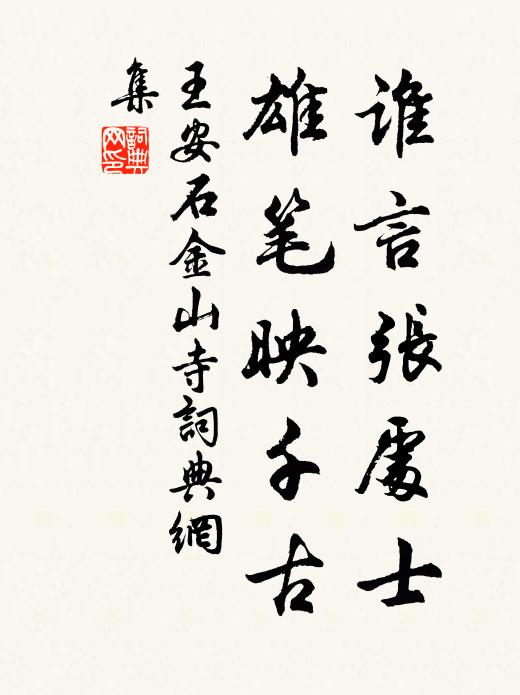 谁言張處士
雄笔映千古
王安石金山寺詞典網
集
詞典网印